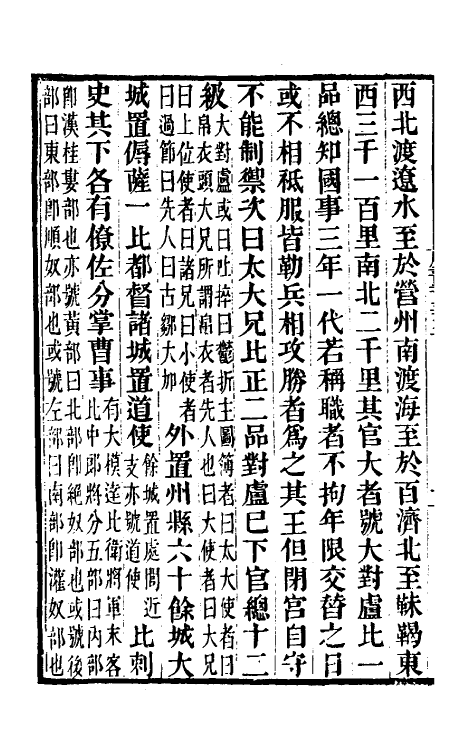 西北渡遼水至於營州南渡海至於百濟北至靺鞨東
西三千一百里南北二千里其官大者號大對盧比一
品總知國事三年一代若稱職者不拘年限交替之日
或不相祗服皆勒兵相攻勝者爲之其王但閉宮自守
不能制禦次曰太大兄比正二品對盧巳下官總十二
級大對盧或曰吐捽曰鬱折主圖簿者曰太大使者曰
帛衣頭大兄所謂帛衣者先人也曰大使者曰大兄
曰上位使者曰諸兄曰小使者
曰過節曰先人曰古鄒大加
外置州縣六十餘城大
城置傉薩一比都督諸城置道使餘城置處閭近
支亦號道使
比刺
史其下各有僚佐分掌曹事有大模達比衛將軍末客
比中郎將分五部曰內部
即漢桂婁部也亦號黃部曰北部即絕奴部也或號後
部曰東部即順奴部也或號左部曰南部即灌奴部也